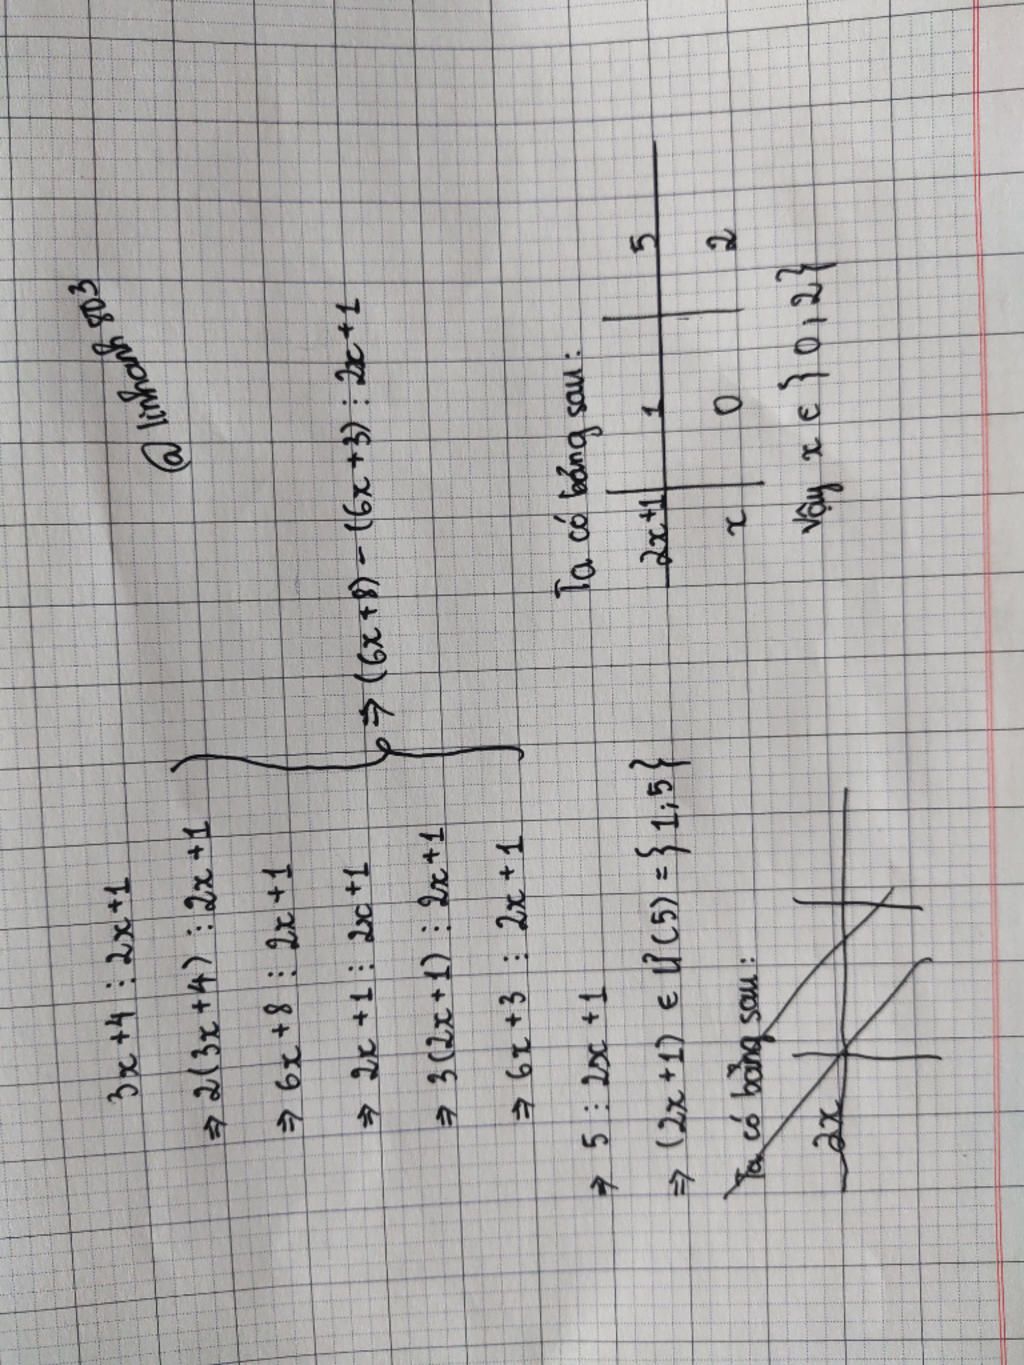 @linhanh803
3x+4 ⋮ 2x+1
⇒ 2(3x+4) ⋮ 2x+1
⇒ 6x+8 ⋮ 2x+1
⇒ 2x+1 ⋮ 2x+1
⇒ 3(2x+1) ⋮ 2x+1
⇒ 6x+3 ⋮ 2x+1
⇒ (6x+8) - (6x+3) ⋮ 2x+1
⇒ 5 ⋮ 2x+1
⇒ (2x+1) ∈ Ư(5) = {1;5}
Ta có bảng sau:
2x
Ta có bảng sau:
2x+1 1 5
x 0 2
Vậy x ∈ {0,2}